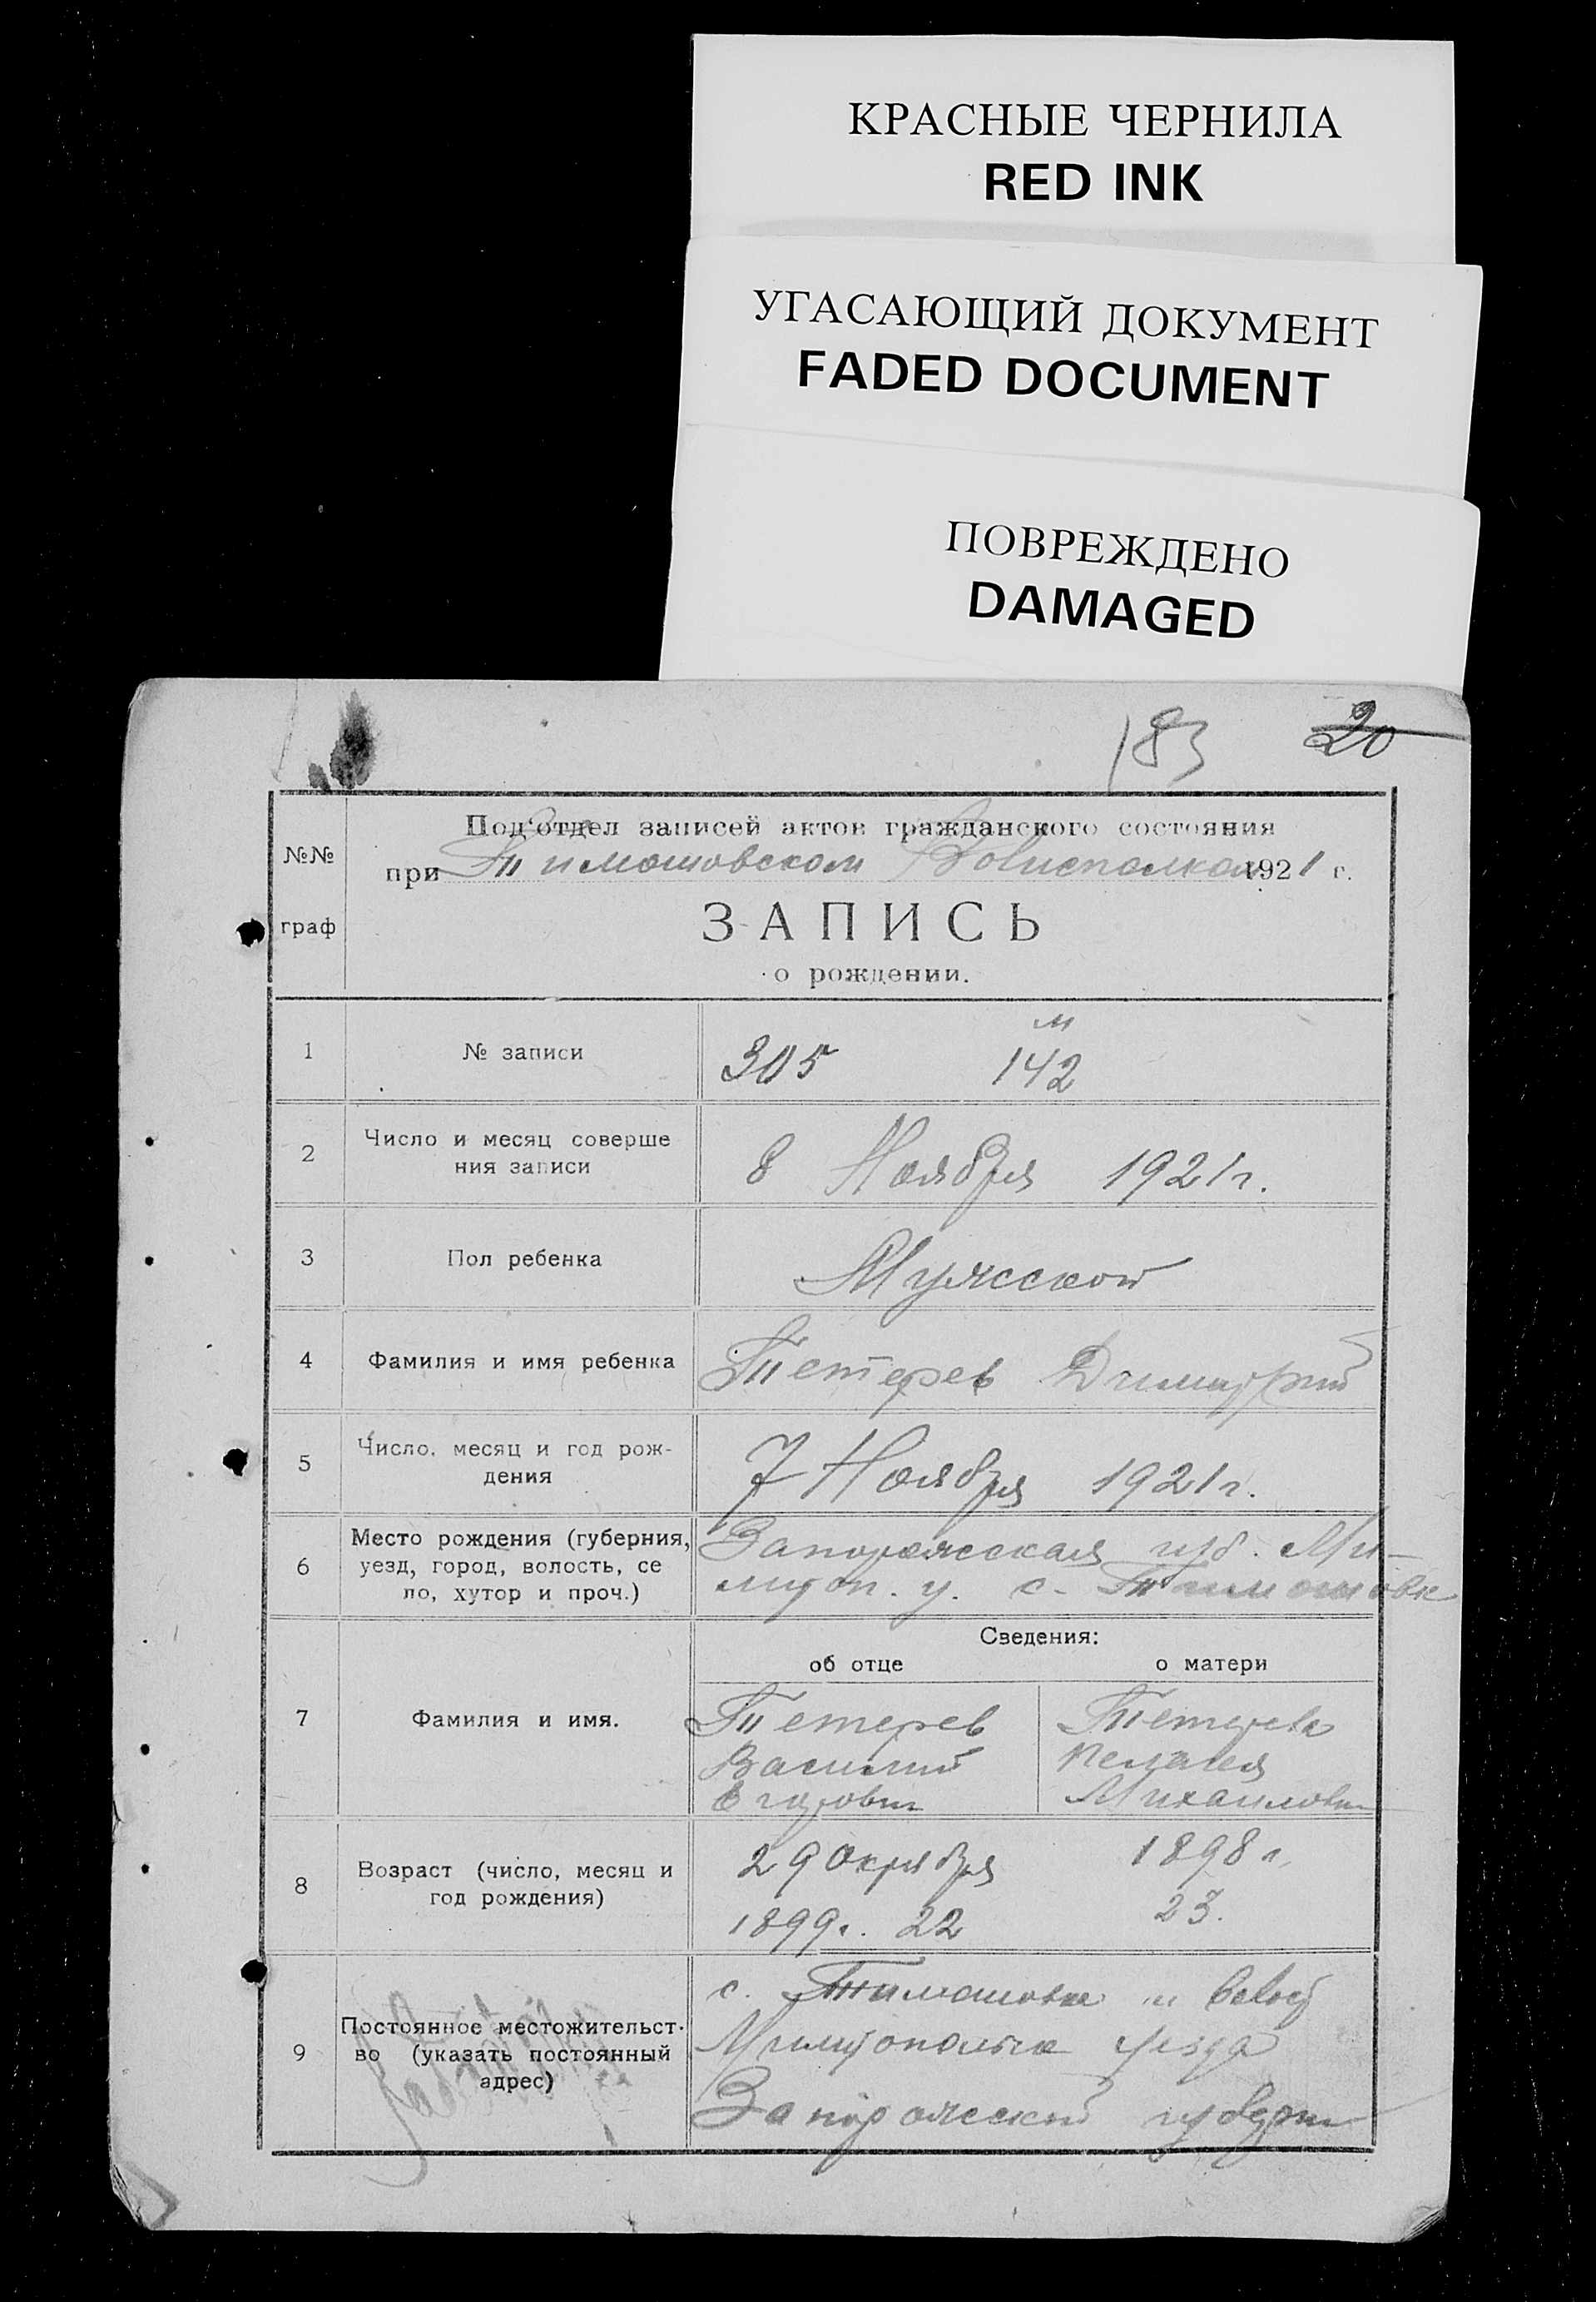 КРАСНЫЕ ЧЕРНИЛА
RED INK
УГАСАЮЩИЙ ДОКУМЕНТ
FADED DOCUMENT
ПОВРЕЖДЕНО
DAMAGED
183 20
№№ граф
Под‘отдел записей актов гражданского состояния
при Тимошовском Волисполкоме 1921 г.
ЗАПИСЬ
о рождении.
1 № записи 305 м 142
2 Число и месяц соверше
ния записи
8 Ноября 1921 г.
3 Пол ребенка Мужской
4 Фамилия и имя ребенка Тетерев Димитрий
5 Число, месяц и год рож-
дения
7 Ноября 1921 г.
6 Место рождения (губерния,
уезд, город, волость, се
ло, хутор и проч.)
Запорожская губ. Ми-
литоп. у. с. Тимошовке
Сведения:
об отце о матери
7 Фамилия и имя.
Тетерев
Василий
Егорович
Тетерева
Пелагея
Михаиловна
8 Возраст (число, месяц и
год рождения)
29 Октября
1899 г. 22
1898 г.
23.
9 Постоянное местожительст-
во (указать постоянный
адрес)
с. Тимошовка и
уезда
Запорожской губерни